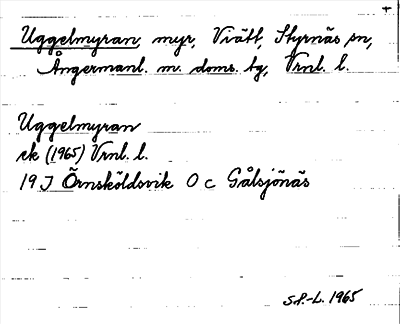 Uggelmyran myr, Viätt, Styrnäs sn,
Ångermanl. m. doms. tg, Vrnl. l.
Uggelmyran
ek (1965) Vrnl. l.
19 J Örnsköldsvik O c Gålsjönäs
S.P.-L. 1965